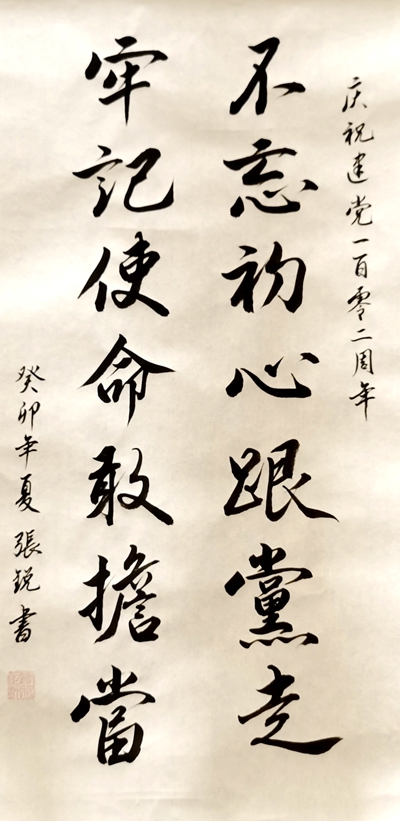 庆祝建党一百零二周年
不忘初心跟黨走
牢記使命敢擔當
癸卯年夏張銳書